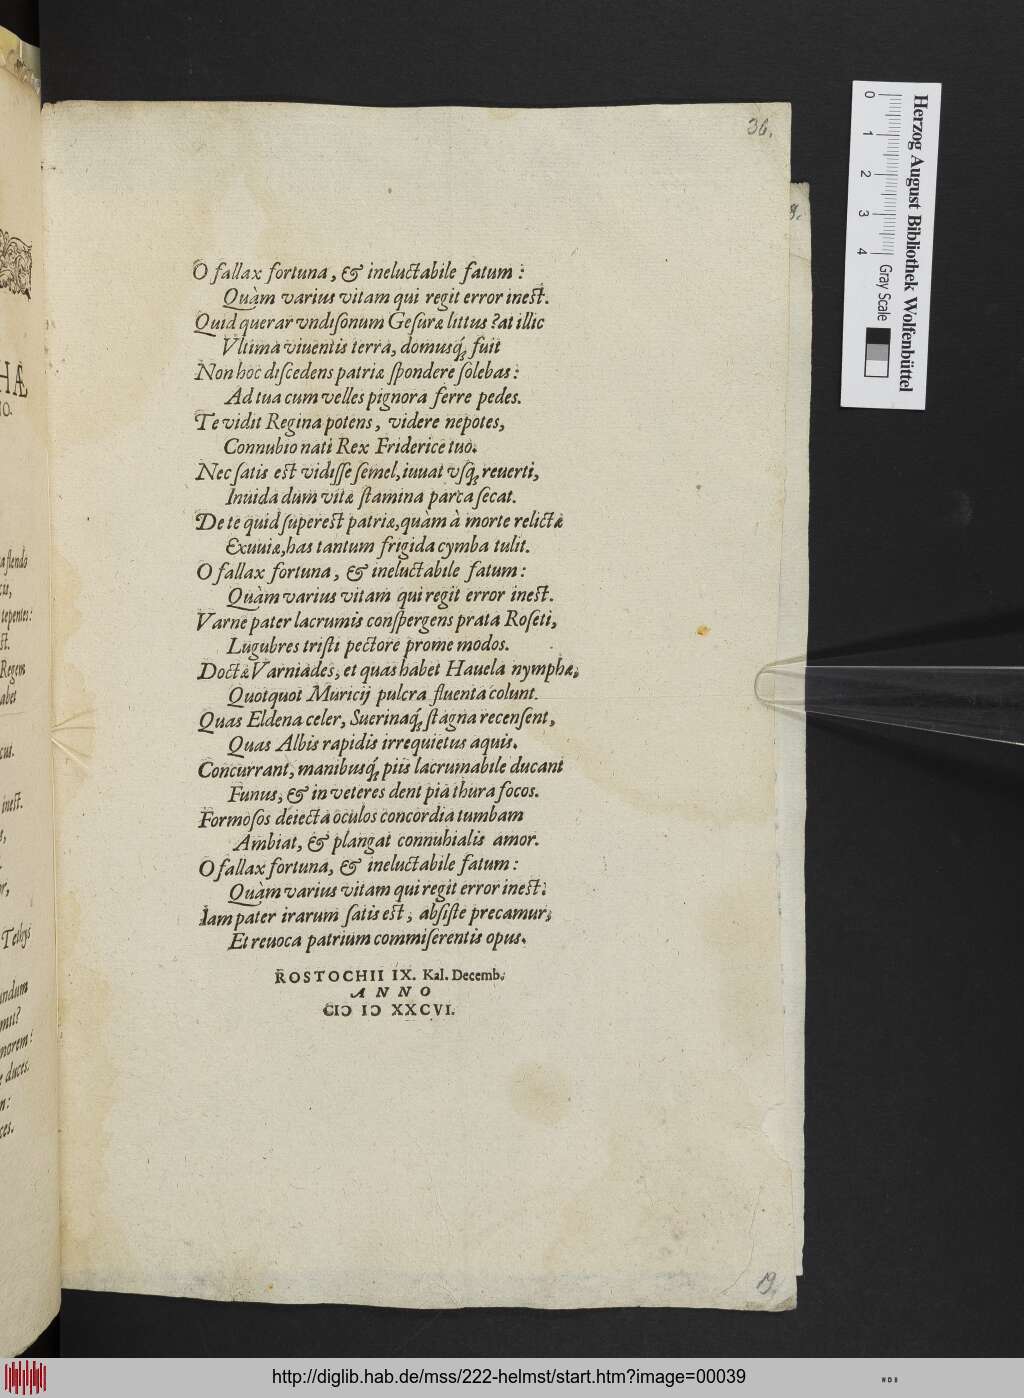 36.
O fallax fortuna, & ineluctabile fatum:
Quàm varius vitam qui regit error inest.
Quid querar vndisonum Gesuræ littus? at illic
Vltima viuentis terra, domusq́; fuit
Non hoc discedens patriæ spondere solebas:
Ad tua cum velles pignora ferre pedes.
Te vidit Regina potens, videre nepotes,
Connubio nati Rex Friderice tuo.
Nec satis est vidisse semel, iuuat vsq́; reuerti,
Inuida dum vitæ stamina parca secat.
De te quid superest patriæ, quàm à morte relictæ
Exuuiæ, has tantum frigida cymba tulit.
O fallax fortuna, & ineluctabile fatum:
Quàm varius vitam qui regit error inest.
Varne pater lacrumis conspergens prata Roseti,
Lugubres tristi pectore prome modos.
Doctæ Varniades, et quas habet Hauela nymphæ,
Quotquot Muricij pulcra fluenta colunt.
Quas Eldena celer, Suerinaq́; stagna recensent,
Quas Albis rapidis irrequietus aquis.
Concurrant, manibusq́; piis lacrumabile ducant
Funus, & in veteres dent pia thura focos.
Formosos deiecta oculos concordia tumbam
Ambiat, & plangat connubialis amor.
O fallax fortuna, & ineluctabile fatum:
Quàm varius vitam qui regit error inest.
Iam pater irarum satis est, absiste precamur,
Et reuoca patrium commiserentis opus.
ROSTOCHII IX. Kal. Decemb.
ANNO
CIↃ IↃ XXCVI.
19.
HÆ
a flendo
tepentes:
st.
Regem
abet
cus.
inest.
Tethys
undum
morem:
ducts.
Herzog August Bibliothek Wolfenbüttel
0 1 2 3 4
Gray Scale
http://diglib.hab.de/mss/222-helmst/start.htm?image=00039